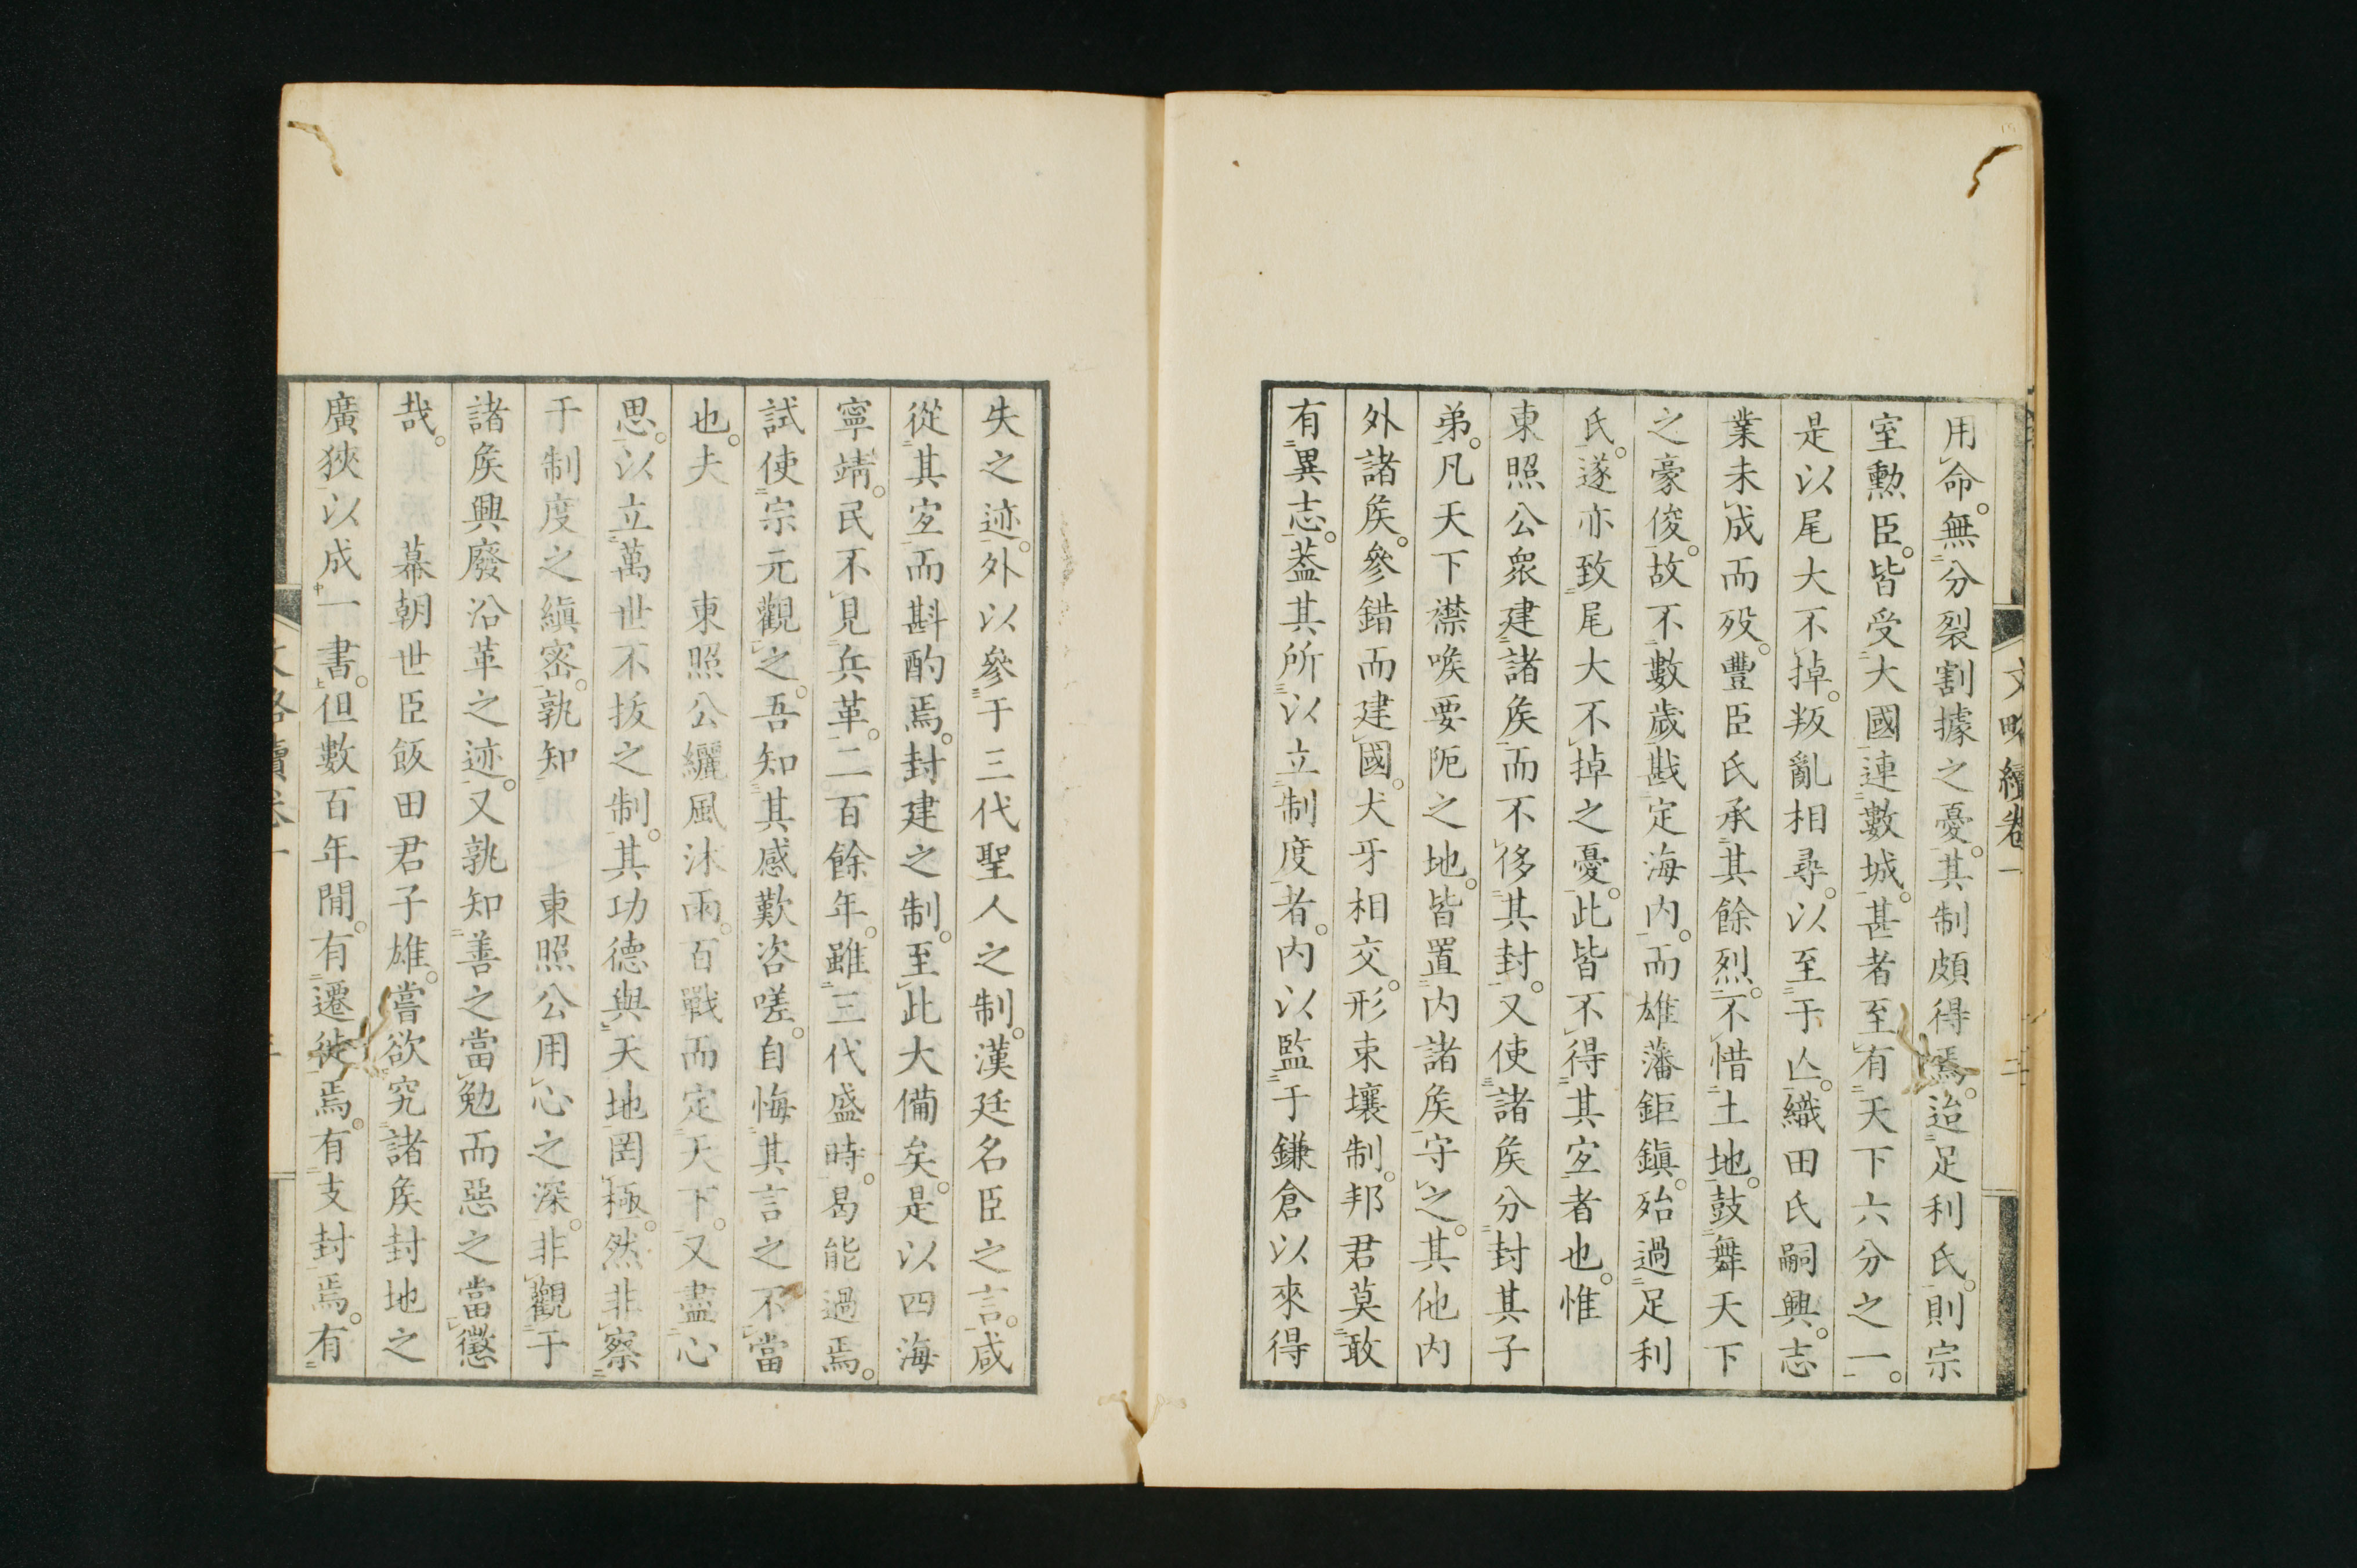 用命。無分裂割據之憂。其制頗得焉。迨足利氏。則宗
室勲臣。皆受大國連數城。甚者至有天下六分之一。
是以尾大不掉。叛亂相尋。以至于亾。織田氏嗣興。志
業未成而歿。豐臣氏承其餘烈。不惜土地。鼓舞天下
之豪俊。故不數歲戡定海内。而雄藩鉅鎭。殆過足利
氏。遂亦致尾大不掉之憂。此皆不得其宐者也。惟
東照公衆建諸矦。而不侈其封。又使諸矦分封其子
弟。凡天下襟喉要阨之地。皆置内諸矦守之。其他内
外諸矦。參錯而建國。犬牙相交。形束壤制。邦君莫敢
有異志。葢其所以立制度者。内以監于鎌倉以來得
失之迹。外以參于三代聖人之制。漢廷名臣之言。咸
從其宐而斟酌焉。封建之制。至此大備矣。是以四海
寧靖。民不見兵革。二百餘年。雖三代盛時。曷能過焉。
試使宗元觀之。吾知其感歎咨嗟。自悔其言之不當
也。夫東照公纚風沐雨。百戰而定天下。又盡心
思。以立萬世不拔之制。其功德與天地罔極。然非察
于制度之縝密。孰知東照公用心之深。非觀于
諸矦興廢沿革之迹。又孰知善之當勉而惡之當懲
哉。幕朝世臣飯田君子雄。嘗欲究諸矦封地之
廣狹以成一書。但數百年閒。有遷徙焉。有支封焉。有
文略續卷一
二